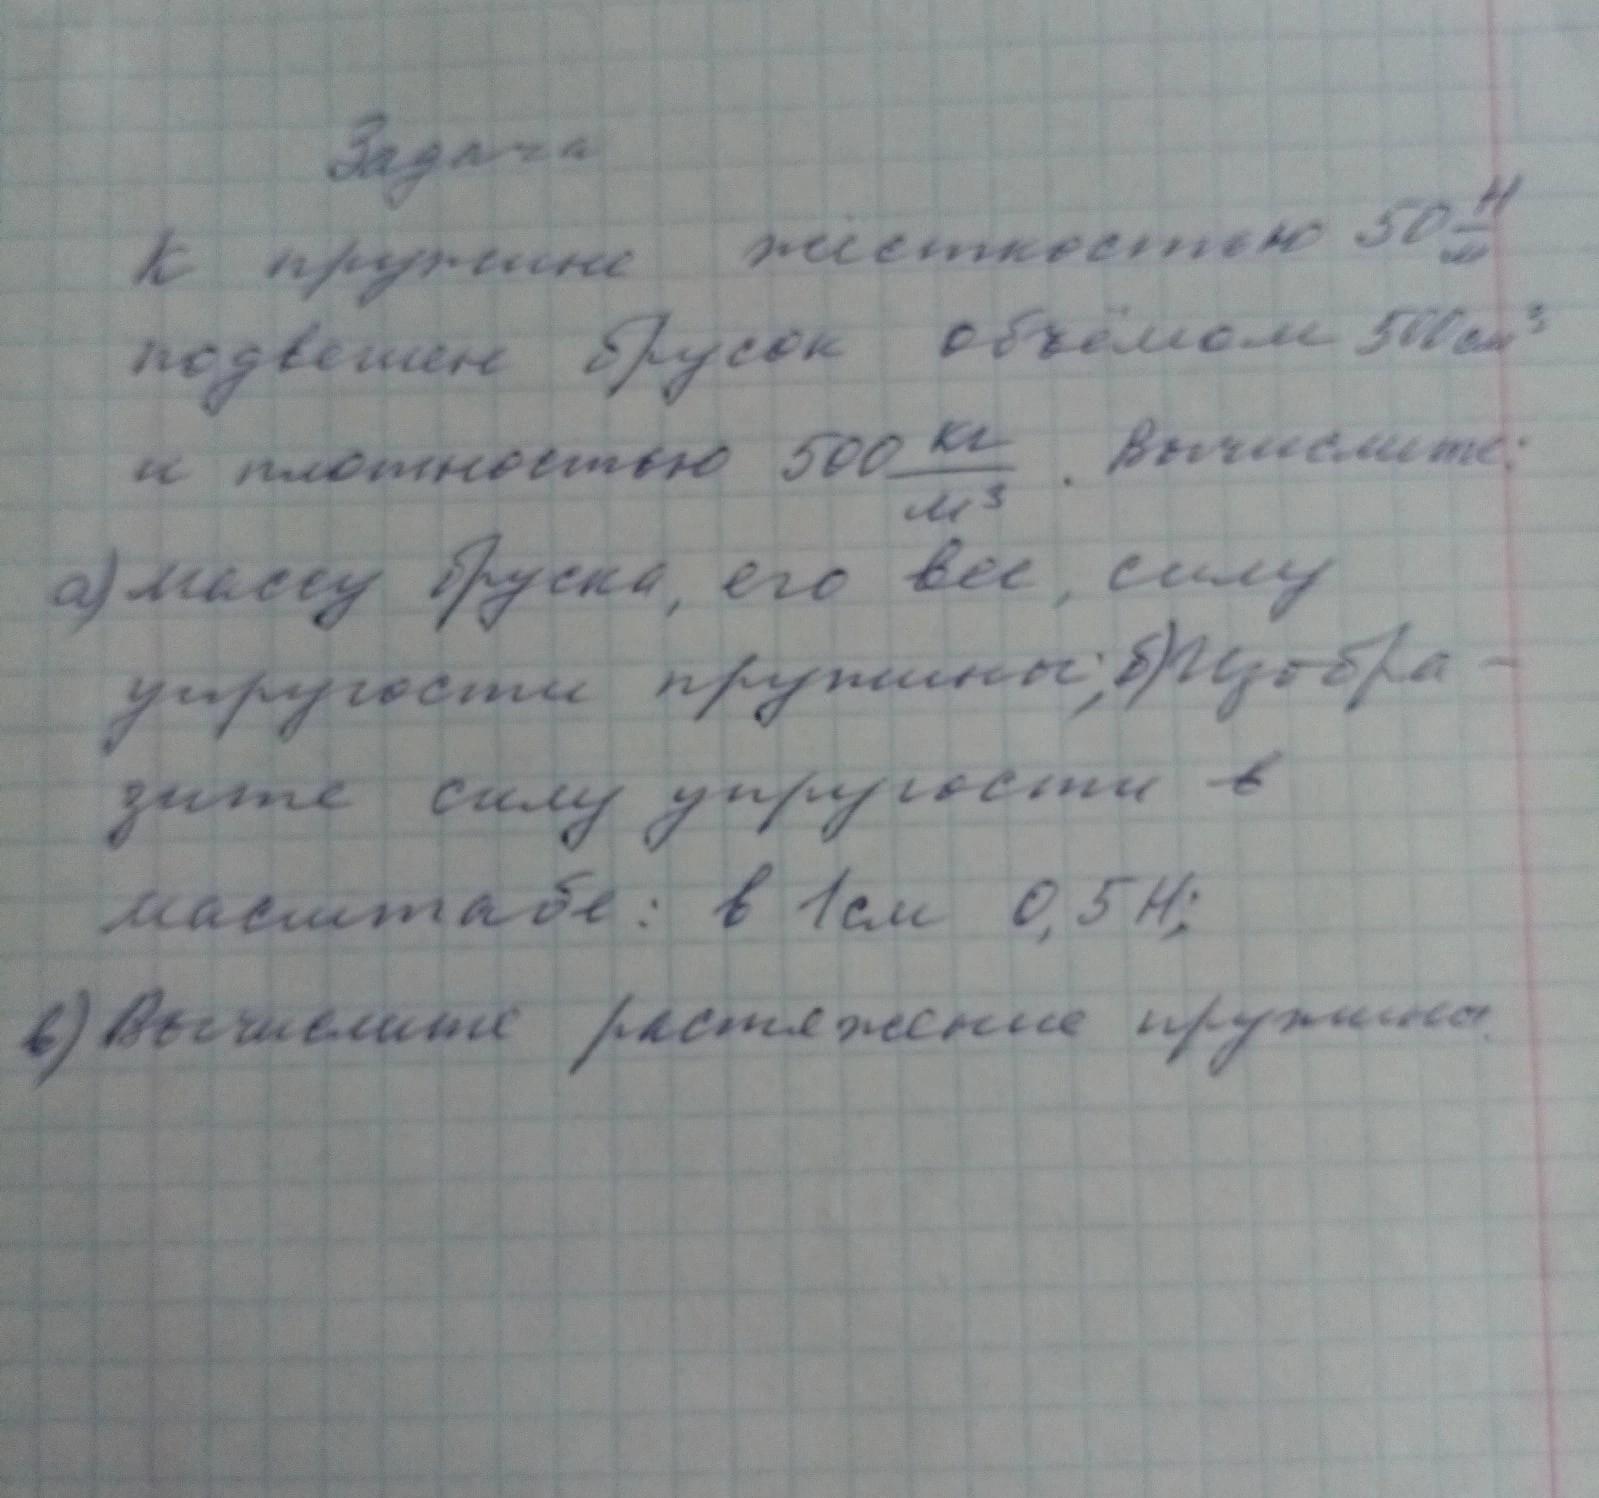 Задача
К пружине жёсткостью 50 Н/м
подвешен брусок объёмом 500 см³
и плотностью 500 кг/м³. Вычислите:
а) массу бруска, его вес, силу
упругости пружины; б) Изобра-
зите силу упругости в
масштабе: в 1 см 0,5 Н;
в) Вычислите растяжение пружины.